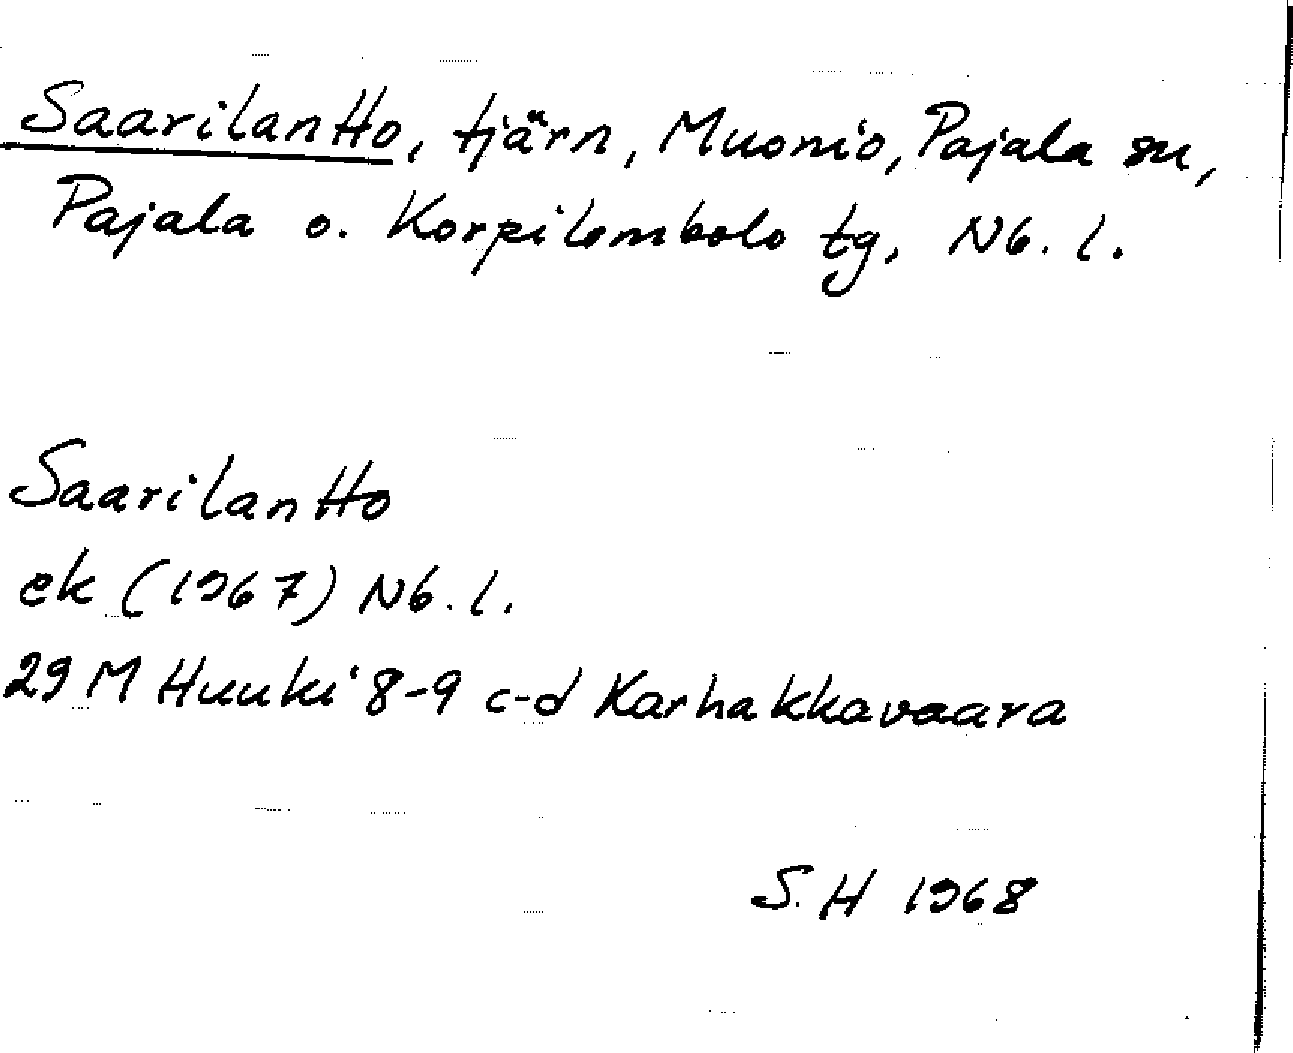 Saarilantto, tjärn, Muonio, Pajala sn,
Pajala o. Korpilombolo tg, Nb. l.
Saarilantto
ek (1967) Nb. l.
29 M Huuki 8-9 c-d Karhakkavaara
S. H 1968